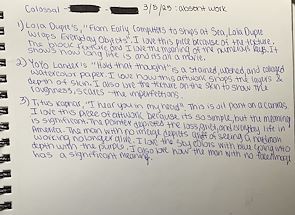 Colossal - 3/5/25: absent work
1) Lola Dupre's, "From Early Computers to Ships at Sea, Lola Dupre
Warps Everyday Objects". I love this piece because of the texture.
The piece texture and I love the meaning of the numerous keys. It
shows how long life is and is all a movie.
2) Yoyo Lander's "Hold that thought" is a stained, washed and collaged
watercolor paper. I love how this artwork shows the layers &
depth of skin. I also love the texture on the skin to show the
roughness, scars & the imperfections.
3) Titus Kaphar, "I hear you in my head". This is oil paint on a canvas.
I love this piece of artwork because its so simple, but the meaning
is significant. The painter depicted the loss, grief, and everyday life in
America. The man with no image depicts grief of seeing a
working no longer alive. I love the sky colors with blue going into
depth with the purple. I also love how the man with no face/image
has a significant meaning.